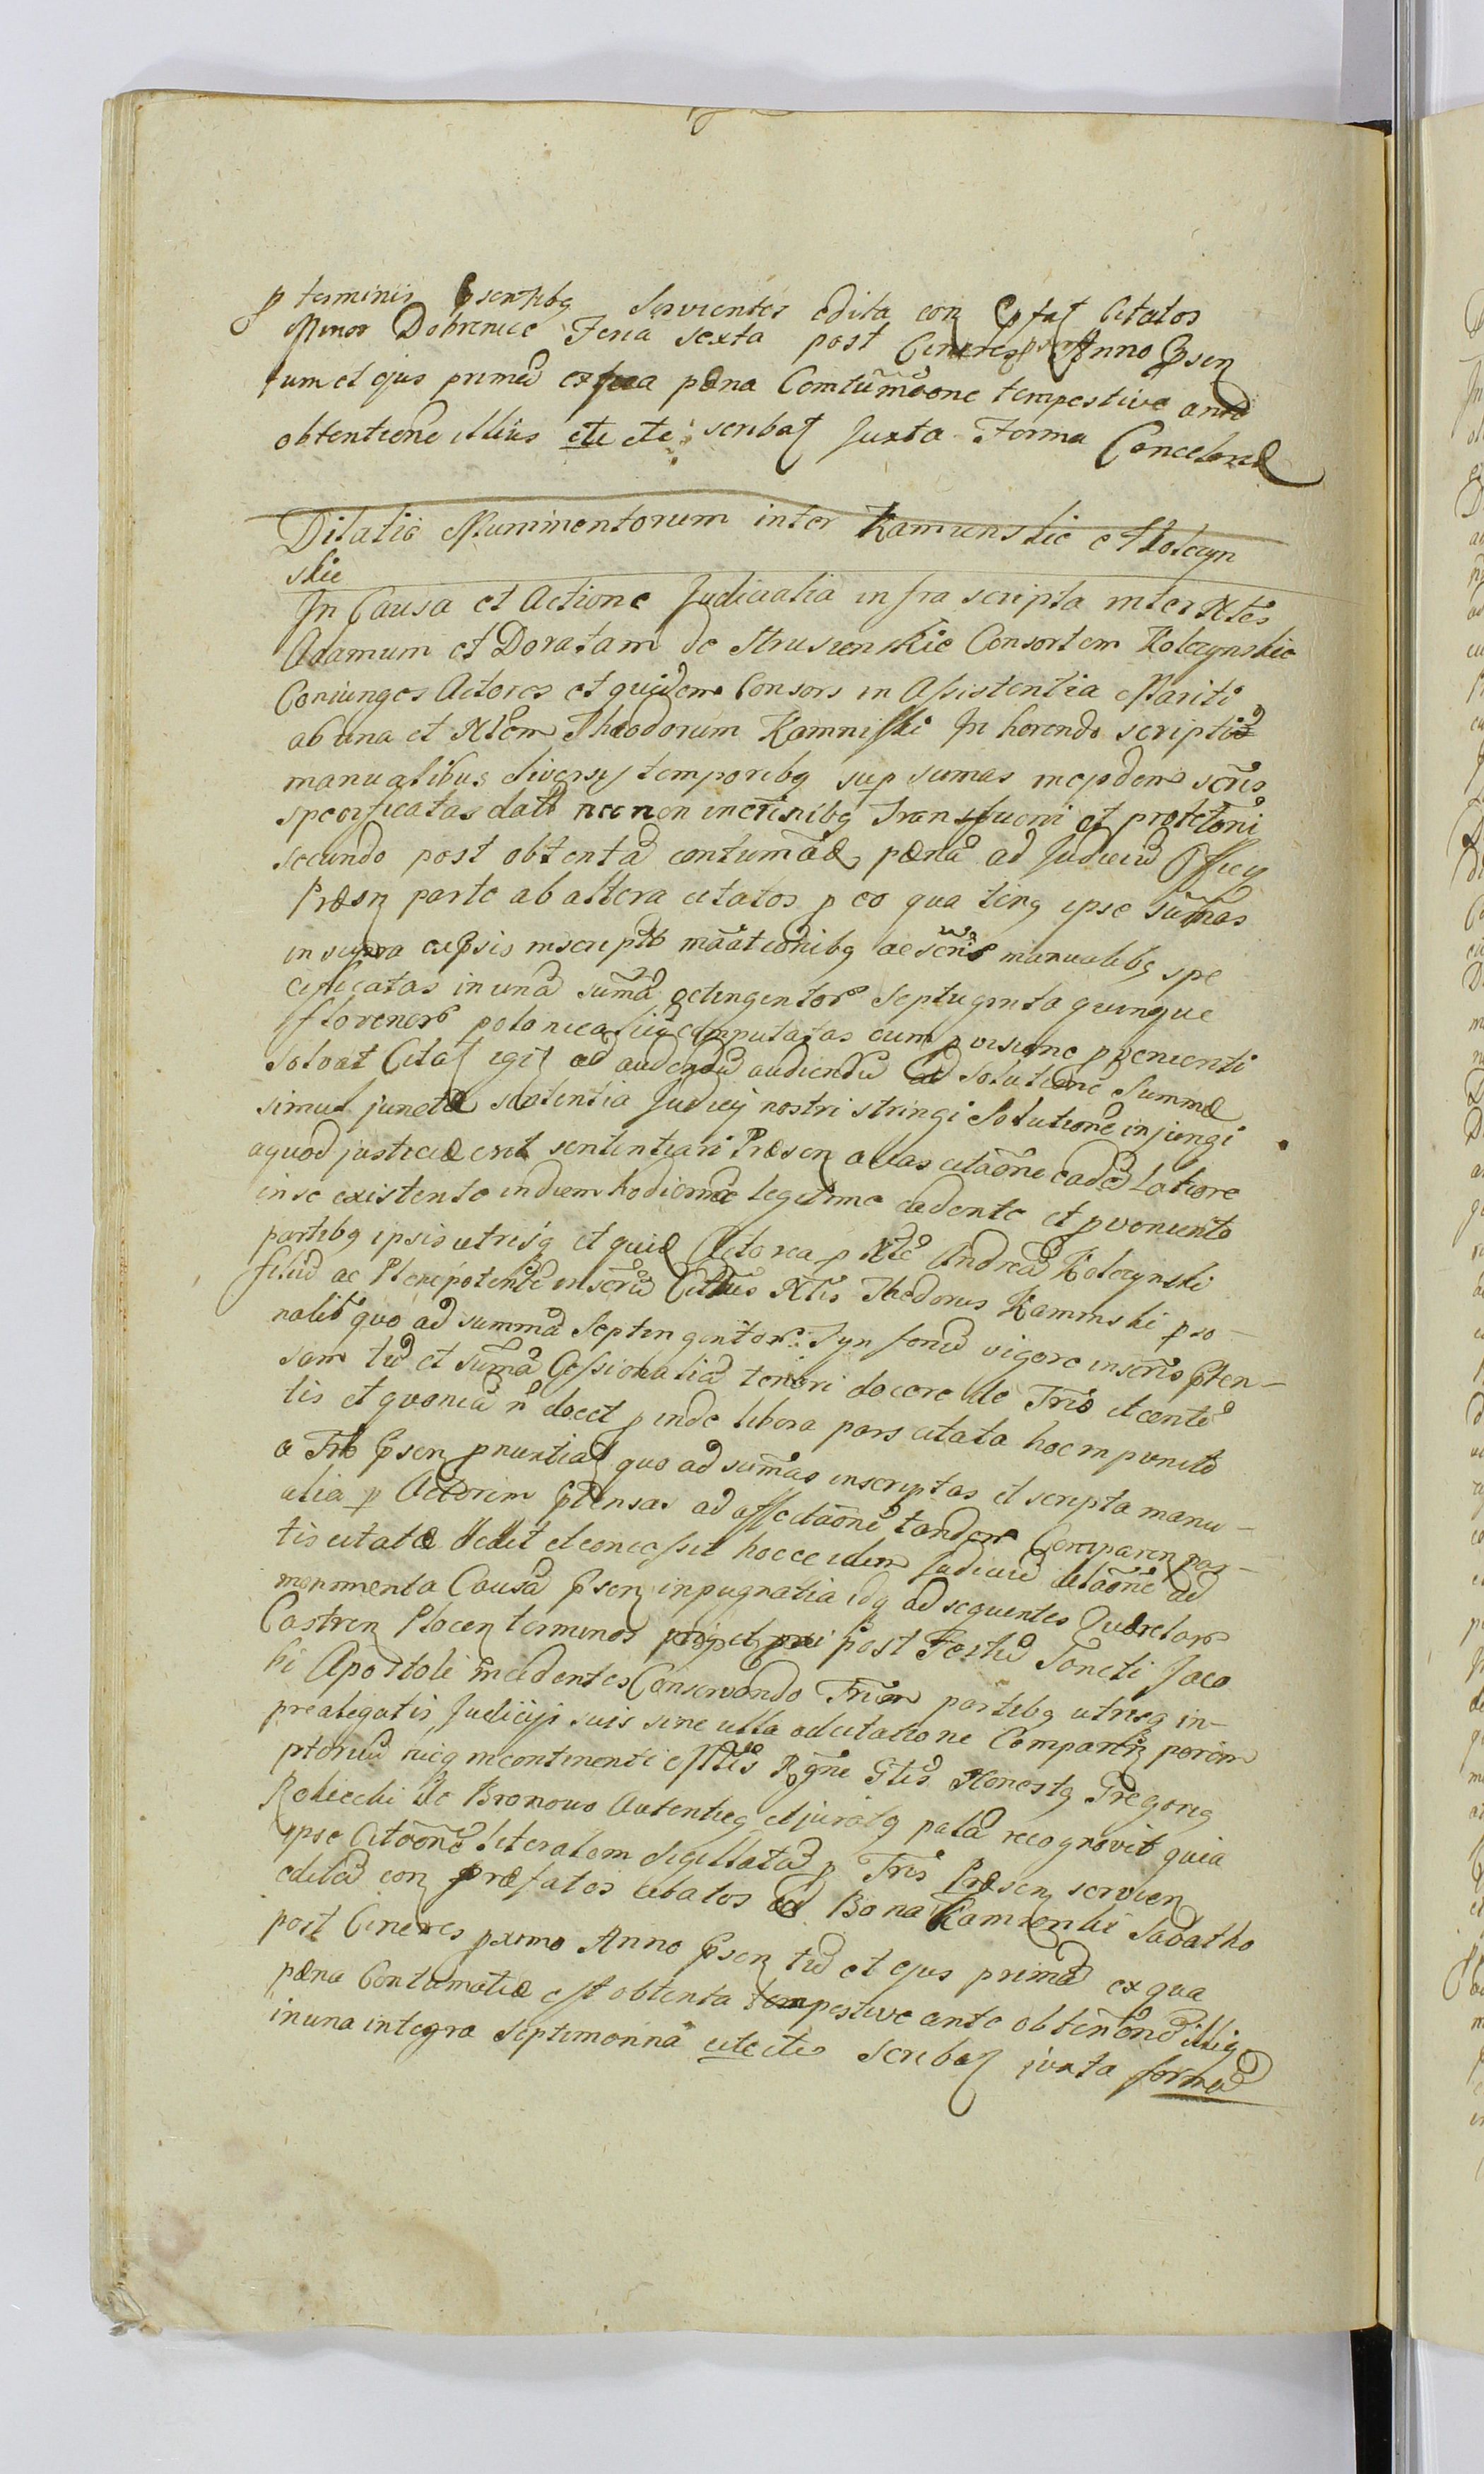 p terminis psentibq servientes edita con pfat Citatos
Minor Dobrenice Feria sexta post Cineres Anno psen
tum et ejus primã ex qua pæna Contumãone tempestive ante
obtentione illius etc etc scribat Juxta Forma Cancelar
Dilatio Munimentorum inter Kamienskie et Kolczyn
skie
In Causa et Actione Judicialia infra scripta inter Nles
Adamum et Doratam de Strusienskie Consortem Kolczynskie
Coniunges Actores et quidem Consors in Assistentia Mariti
ab una et Nlem Theodorum Kamniski In herendo scriptis
manualibus diversis temporibq sup sumas in ejsdem scris
specificatas datis nec non incrnibq Transfusioni et protetoni
secundo post obtentã contumãæ pænã ad Judiciũ Officy
Præsn parte ab altera citatos p eo qua tinq ipse sumas
in supra expsis inscriptis mãationibq ac scris manualibq spe
cificatas in unã sumã octingentor septuginta quinque
florenor polonicaliũ computatas cum pvisione pvenienti
solvat Citat igit ad audendũ audiendũ ad solutione Summæ
simul junctæ sententia Judicij nostri stringi Solutione injungi
aquod justiciæ erit sententiari Præsen allas citãone eadẽ Latiore
in se existente in diem hodiernã legitime cadente et pveniente
partibq ipsis utrisq et quid Actorea p Nlẽ Andreã Kolczynski
filiũ ac Plenipotentẽ inscriũ Citatus Nlis Thedorus Kaminski pso-
nalit quo ad summã Septingentor Tynfoniũ vigore inscris pten-
sam tũ et sumã Cessionaliã teneri docere de Tris et cente
tis et quoniã n docet p inde libera pars citata hoc in puncto
a Trb psen pnuntiat quo ad sumas inscriptas et scripta manu-
alia p Actorem ptensas ad affectãone tandem Comparen par-
tis citatæ dedit et concessit hocce idem Judiciũ dilãone ad
monimenta Causã psen inpugnatia idq ad sequentes Querelar
Castren Plocen terminos post Festũ Sancti Jaco
bi Apostoli incidentes Conservando Trium partibq utrisq in-
prealegatis Judicijs suis sine ulla adcitatione Comparen porém
ptoriũ hicq incontinenti Mtis Regne Gtis Honestq Gregorig
Robiecki de Bronowo Autentieq et juratq palã recognovit quia
ipse Citãone literalem Sigillatũ p Tris Præsen servien
editã con præfatos citatos ad Bona Kamienski Sabatho
post Cineres pximo Anno psen tũ et ejus primã ex qua
pæna Contumatiæ est obtenta tempestive ante obtenõne illig
in una integra septimonna etc etc Scribat iuxta formã